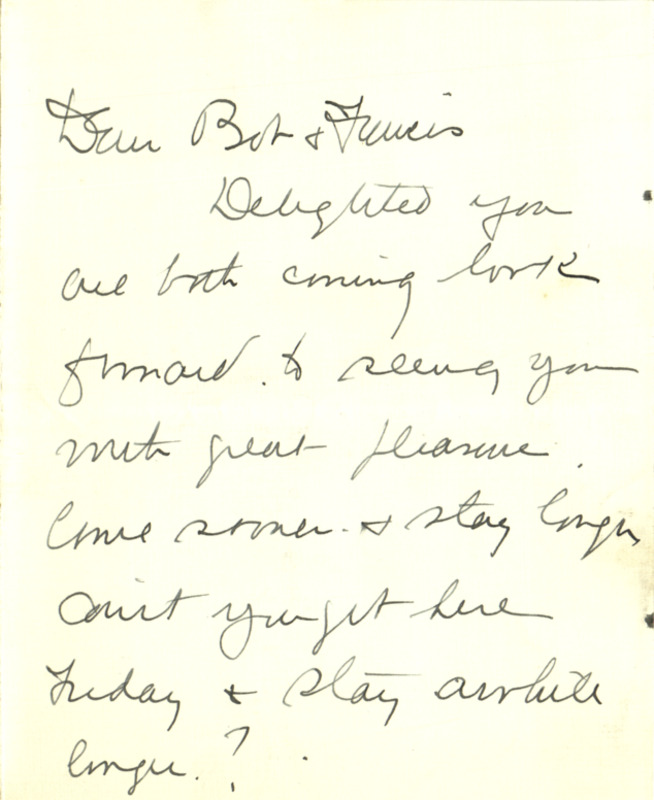 Dear Bob & Francis
Delighted you
are both coming look
forward. to seeing you
with great pleasure.
Come sooner. & stay longer
can't you get here
Friday & stay awhile
longer.?